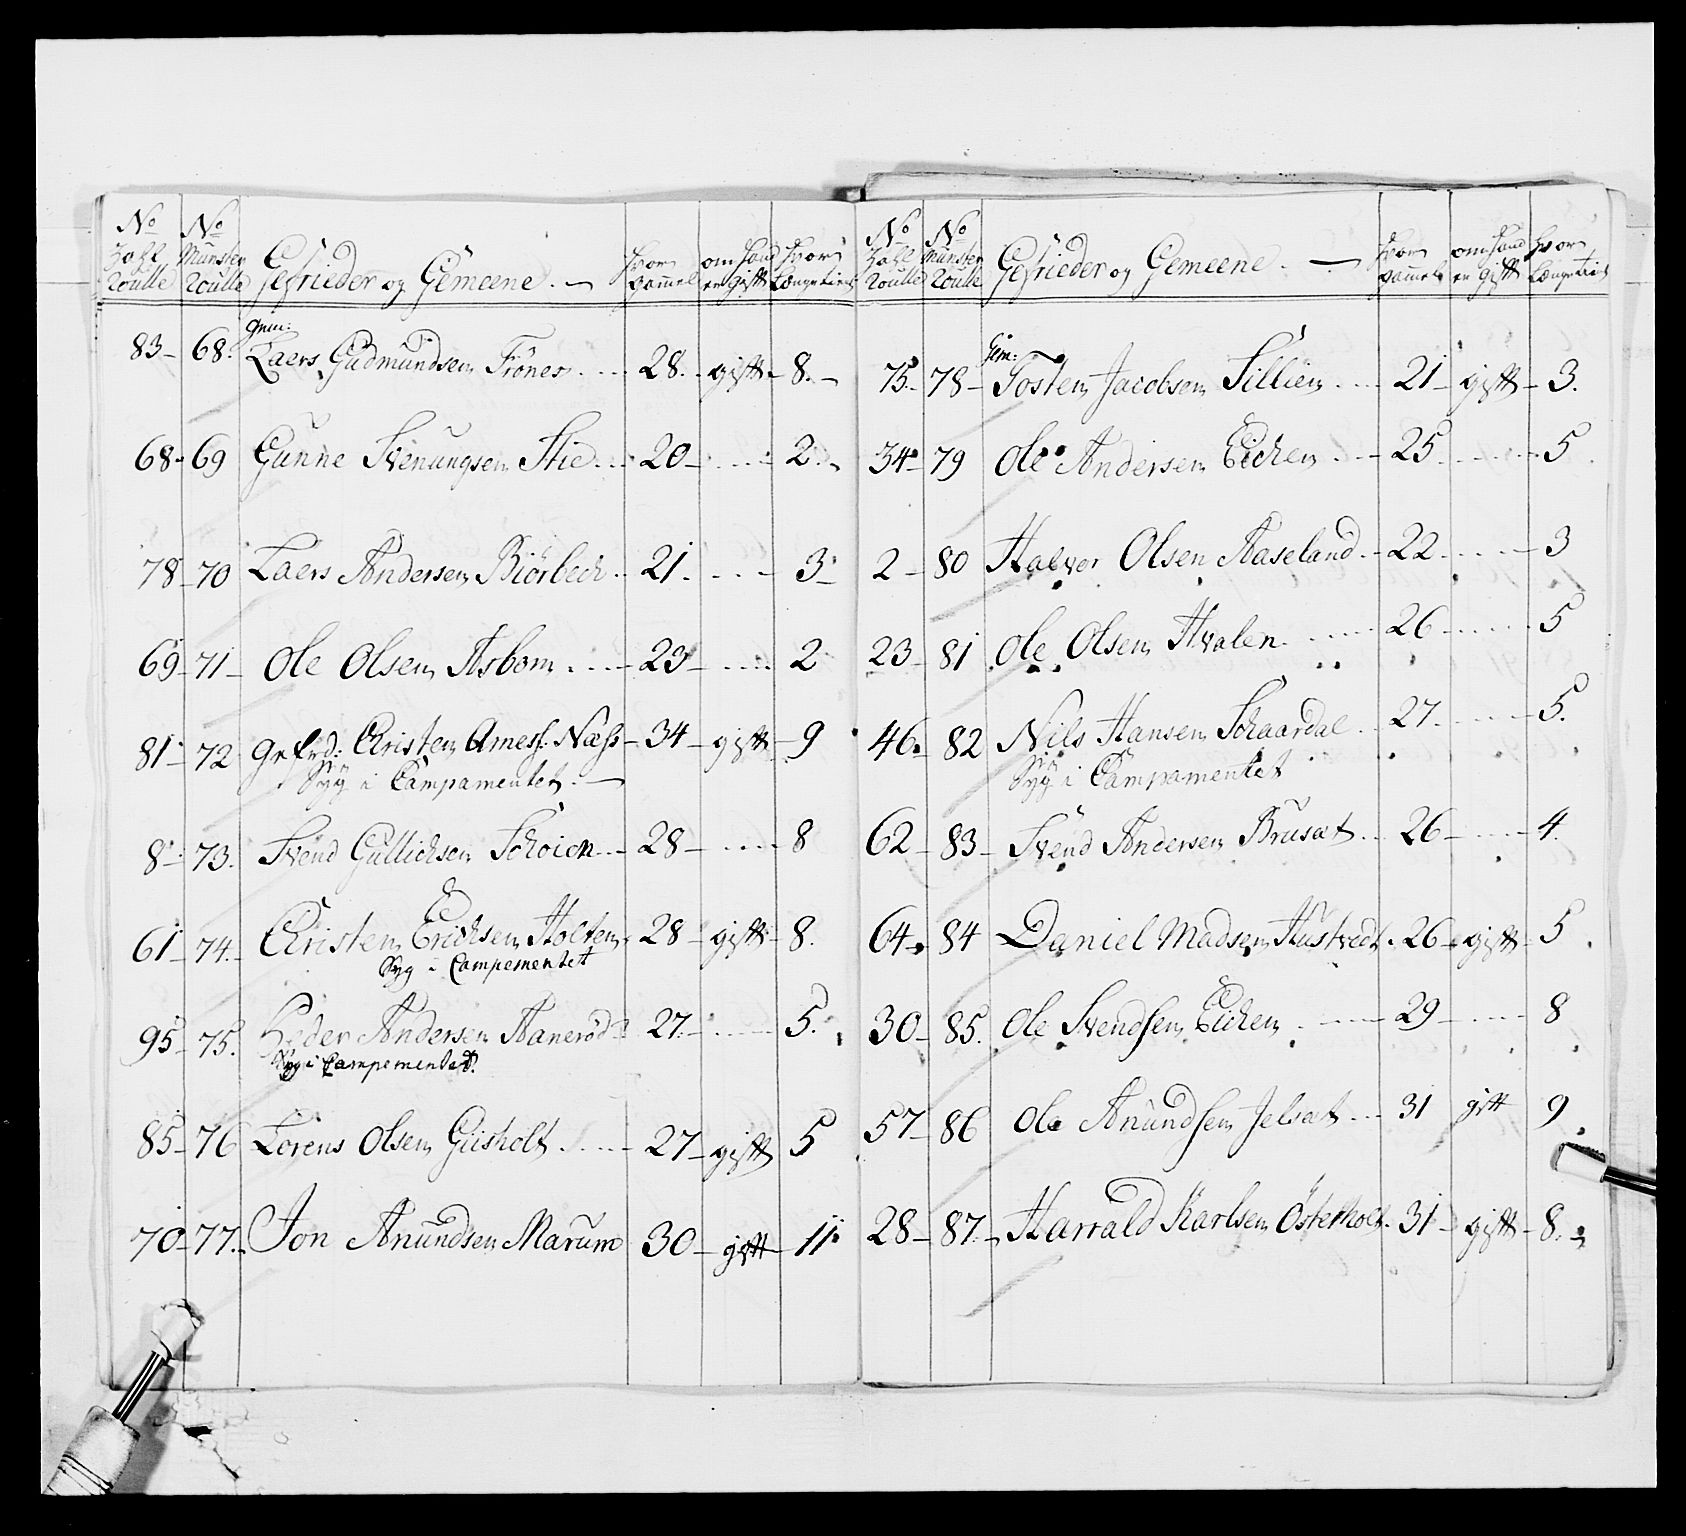 No No
Zahl Munster Gefrieder og Gemeene. — hvor om hand hvor
Roulle Roulle gammel er gift Længe tient
Gem:
83 – 68. Laers Gudmundsen Frönes .... 28. . gift – 8. –
68 – 69 Gunne Svenungsen Stie ... 20 – .... 2. –
78 – 70 Laers Andersen Biörbech .. 21. .... 3 –
69 – 71 – Ole Olsen Asbom ..... 23 – .... 2
81 – 72 Gefrd: Christen Arnesf. Næss – 34 – gift – 9
Syg i Campamentet. —
8 – 73. Svend Gullichsen Schoien ... 28 – .... 8
61 – 74. Christen Erichsen Holten, 28 – gift – 8.
Syg i Campementet
95 – 75. Peder Andersen Aanerød .. 27. – .... 5.
Syg i Campementet.
85 – 76 Lorens Olsen Giisholt ..... 27 – gift 5
70 – 77. – Jon Anundsen Marum 30 – gift – 11.
No No
Zahl Munster Gefrieder og Gemeene. — hvor om hand hvor
Roulle Roulle gammel er gift Længe tient
Gem:
75. – 78 – Tosten Jacobsen Sillien .... 21 – gift – 3.
34 – 79 Ole Andersen Eichen .... 25. ..... 5
2 – 80 Halvor Olsen Aaseland .. 22 .... – 3
23 – 81 Ole Olsen Hvalen ..... 26 – .... 5
46. 82 Nils Hansen Schaardal .. 27. .... – 5.
Syg i Campamentet
62 – 83 – Svend Andersen Brusæt ... 26 – .... – 4.
64. 84 Daniel Madsen Hustvedt . 26 – gift – 5
30 – 85. Ole Svendsen Eichen . .... 29 – .... 8
57 – 86 Ole Anundsen Jelsæt ... 31 gift 9
28 – 87. – Harrald Karlsen Österholt. 31 – gift – 8. –